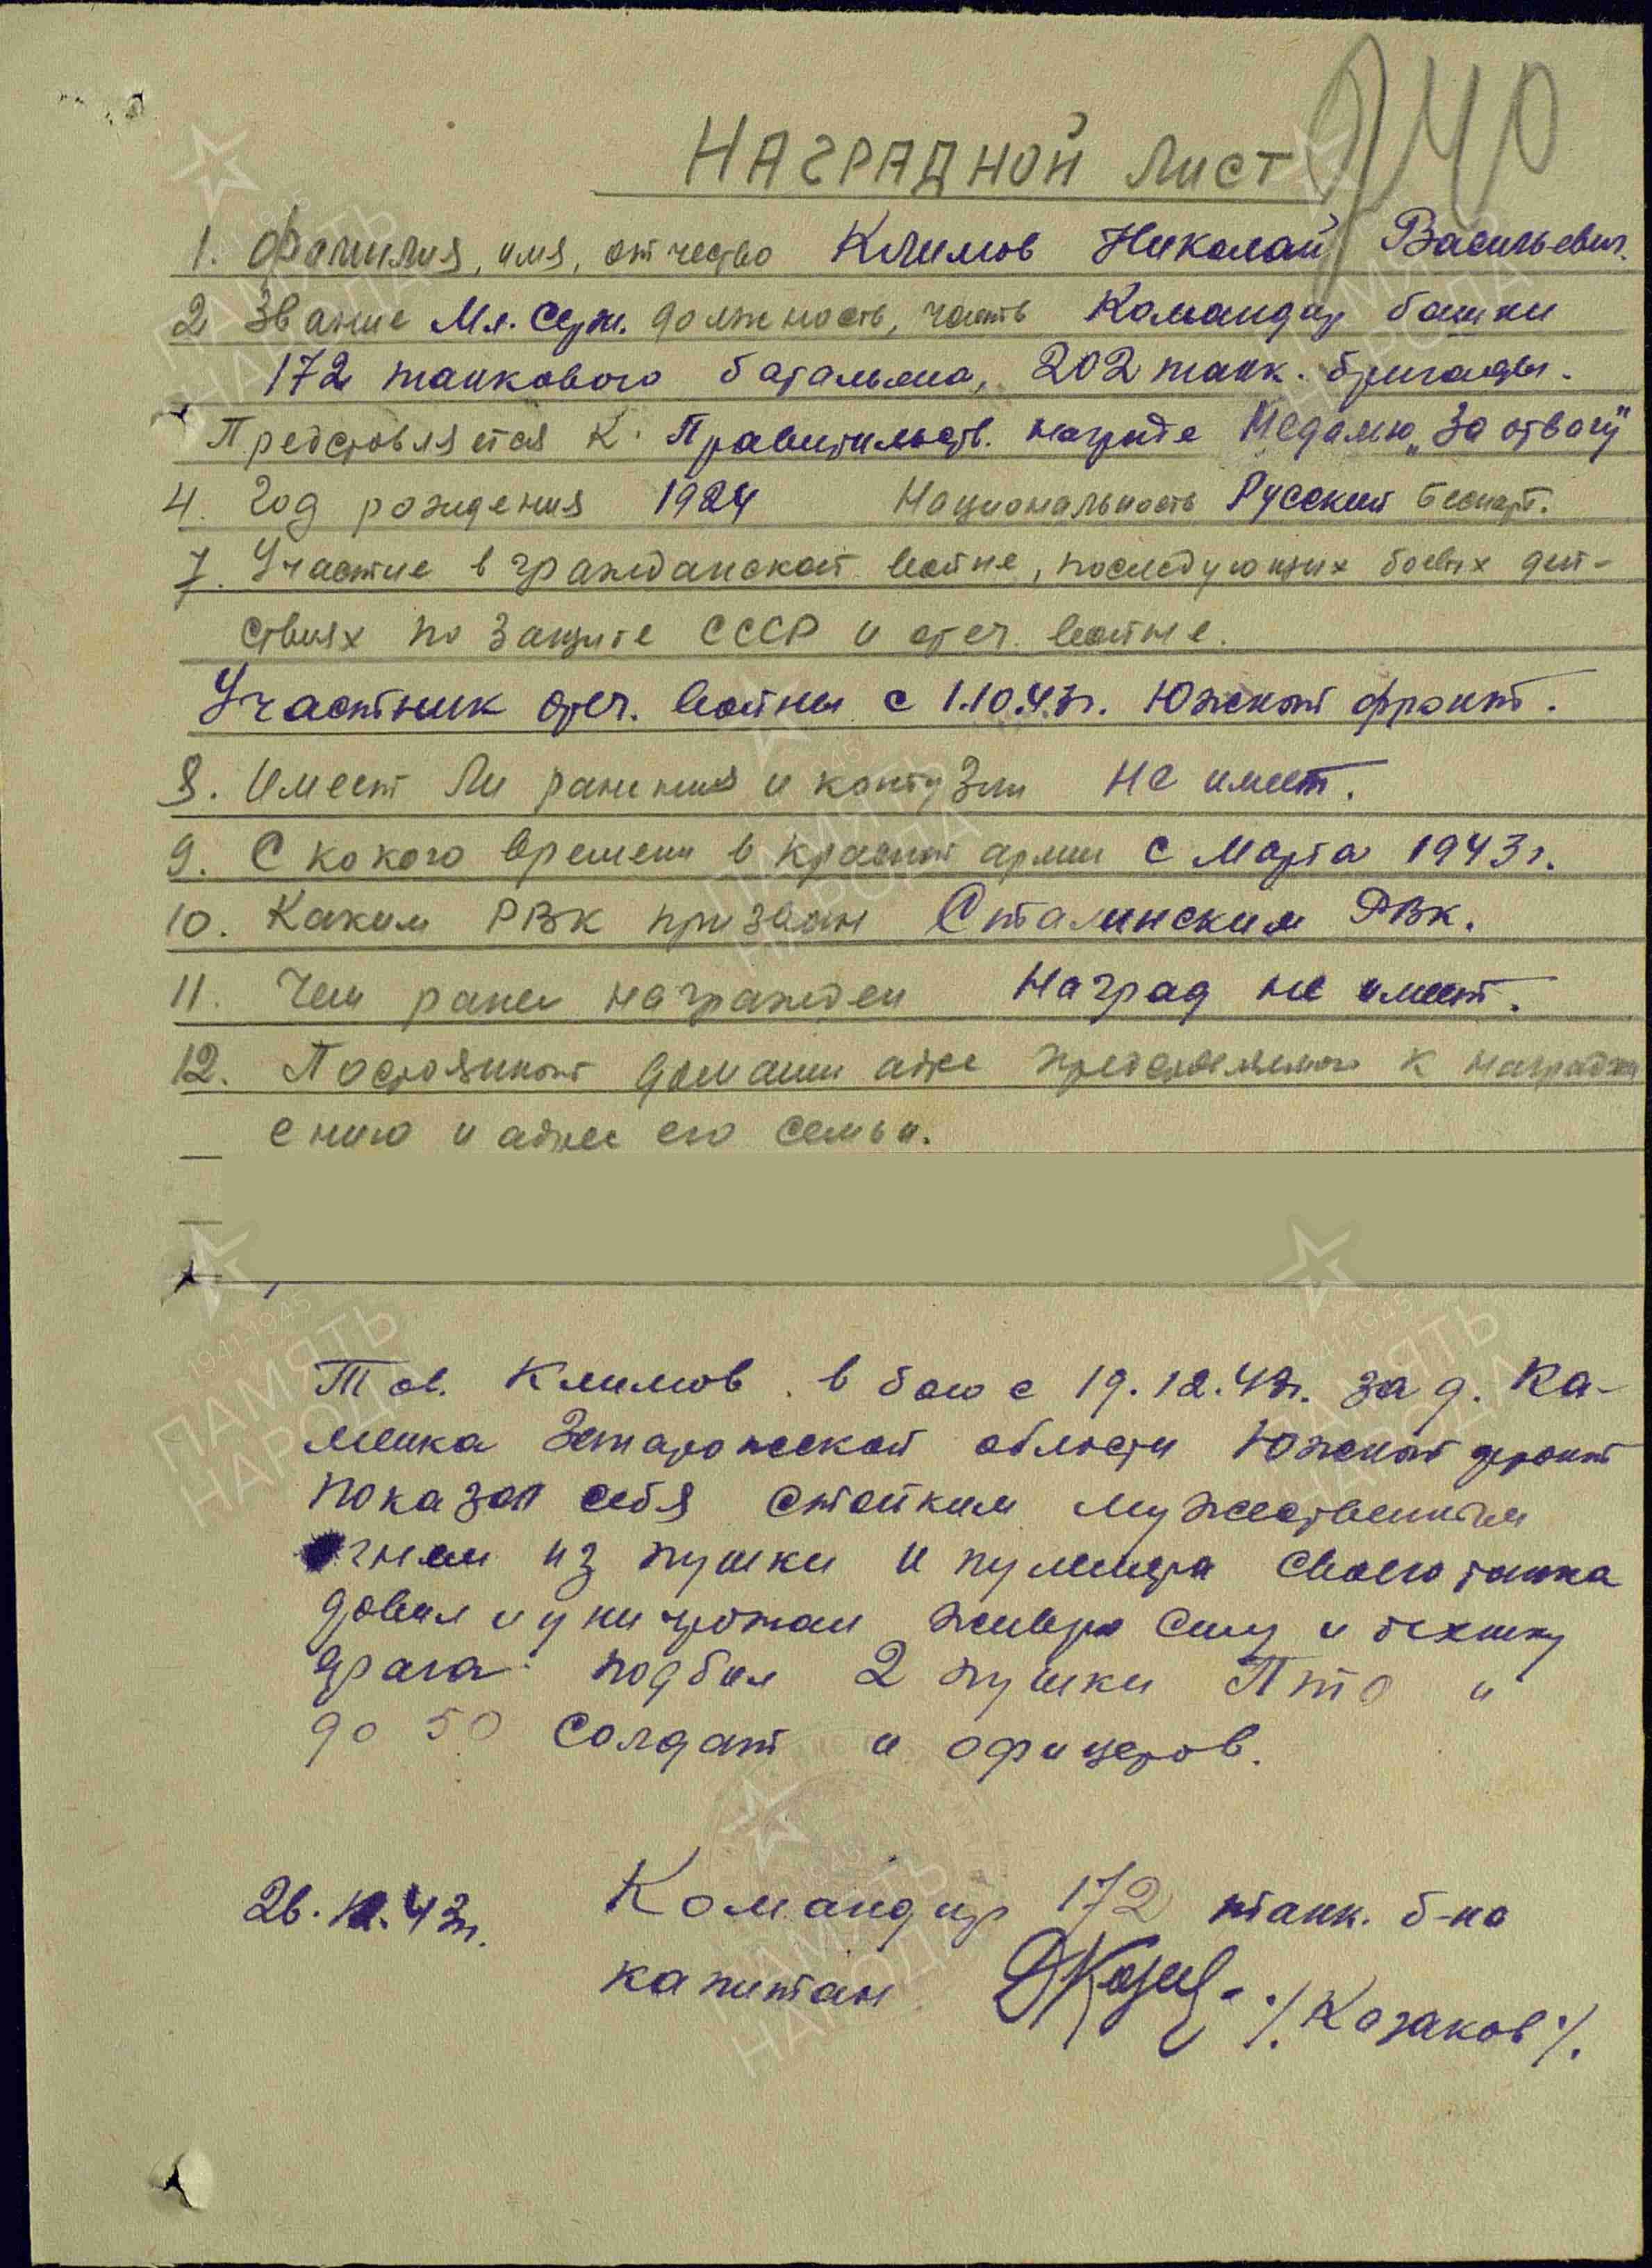 940
НАГРАДНОЙ ЛИСТ
1. Фамилия, имя, отчество Климов Николай Васильевич.
2 Звание Мл. Серж. должность, часть Командир башни
172 танкового батальона, 202 танк. бригады.
Представляется к Правительств. награде Медалью „За отвагу"
4. Год рождения 1924 Национальность Русский беспарт.
7. Участие в гражданской войне, последующих боевых дей-
ствиях по защите СССР и отеч. войне.
Участник отеч. войны с 1.10.43г. Южный фронт.
8. Имеет ли ранения и контузии Не имеет.
9. С какого времени в красной армии с марта 1943г.
10. Каким РВК призван Сталинским РВК.
11. Чем ранее награжден Наград не имеет.
12. Постоянный домашн адрес представляемого к награжд
ению и адрес его семьи.
Тов. Климов в бою с 19.12.43г. за д. Ка-
менка Запарожской области Южный фронт
показал себя стойким мужественным
огнем из пушки и пулемета своего танка
давил и уничтожал живую силу и технику
врага подбил 2 пушки ПТО и
до 50 солдат и офицеров.
26.12.43г. Командир 172 танк. б-на
капитан /Казаков/.
1941-1945
ПАМЯТЬ
НАРОДА